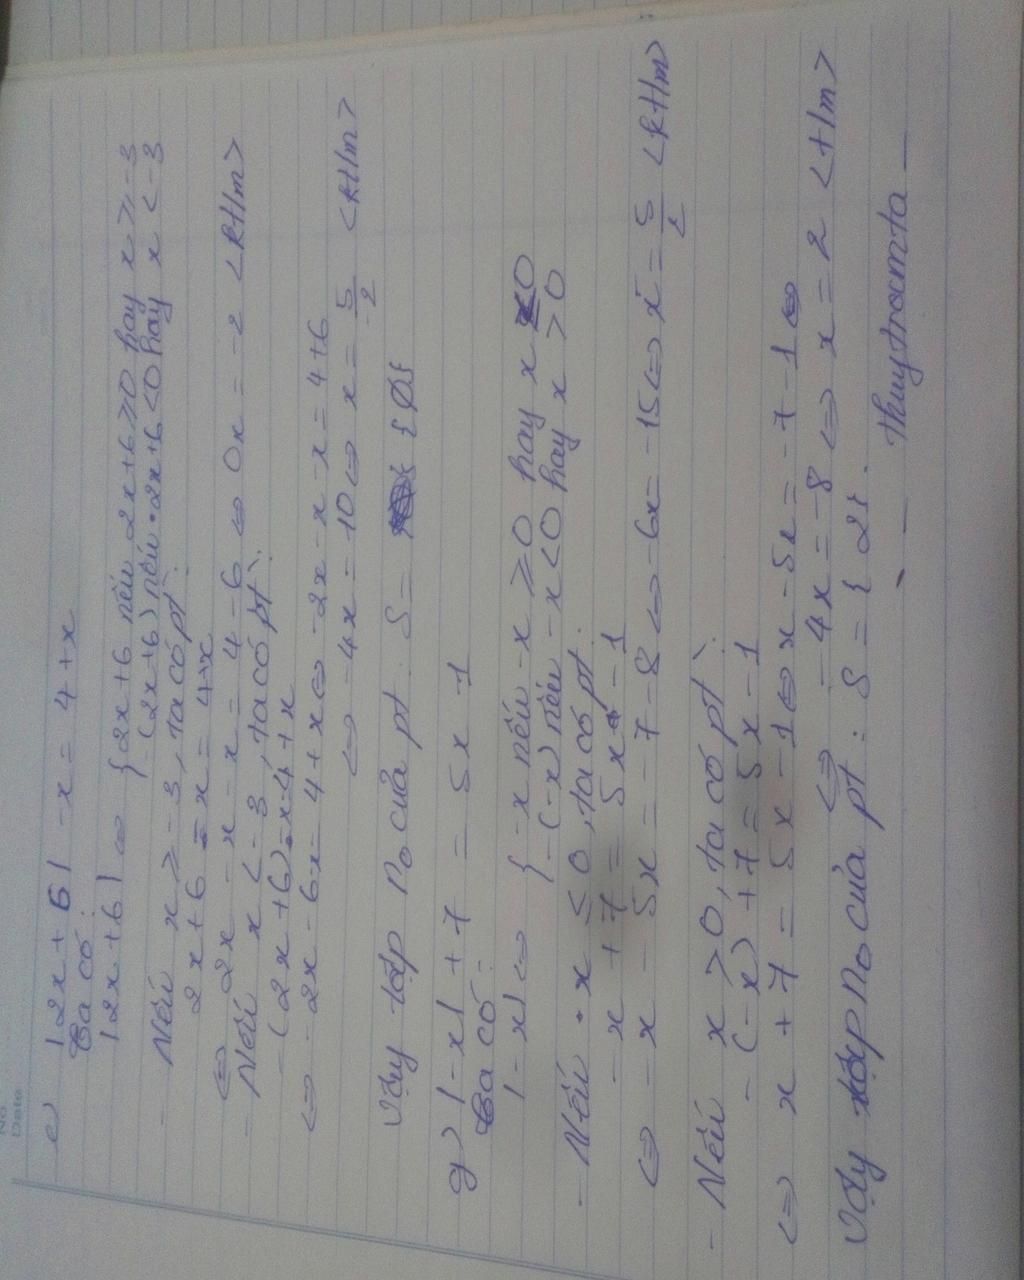 No
Date
e) |2x + 6| - x = 4 + x
Ta có:
|2x + 6| ⇔ { 2x + 6 nếu 2x + 6 ≥ 0 hay x ≥ -3
-(2x + 6) nếu 2x + 6 < 0 hay x < -3
- Nếu x ≥ -3, ta có pt:
2x + 6 - x = 4 + x
⇔ 2x - x - x = 4 - 6 ⇔ 0x = -2 <ktlm>
- Nếu x < -3, ta có pt:
-(2x + 6) - x = 4 + x
⇔ -2x - 6 - x = 4 + x ⇔ -2x - x - x = 4 + 6
⇔ -4x = 10 ⇔ x = 5/-2 <ktlm>
Vậy tập n₀ của pt: S = {Ø}
g) |-x| + 7 = 5x - 1
Ta có:
|-x| ⇔ { -x nếu -x ≥ 0 hay x ≤ 0
-(-x) nếu -x < 0 hay x > 0
- Nếu x ≤ 0, ta có pt:
-x + 7 = 5x - 1
⇔ -x - 5x = -7 - 8 ⇔ -6x = -15 ⇔ x = 5/2 <ktlm>
- Nếu x > 0, ta có pt:
-(-x) + 7 = 5x - 1
⇔ x + 7 = 5x - 1 ⇔ x - 5x = -7 - 1 ⇔
⇔ -4x = -8 ⇔ x = 2 <tlm>
Vậy tập n₀ của pt: S = {2}.
- thuytramta -